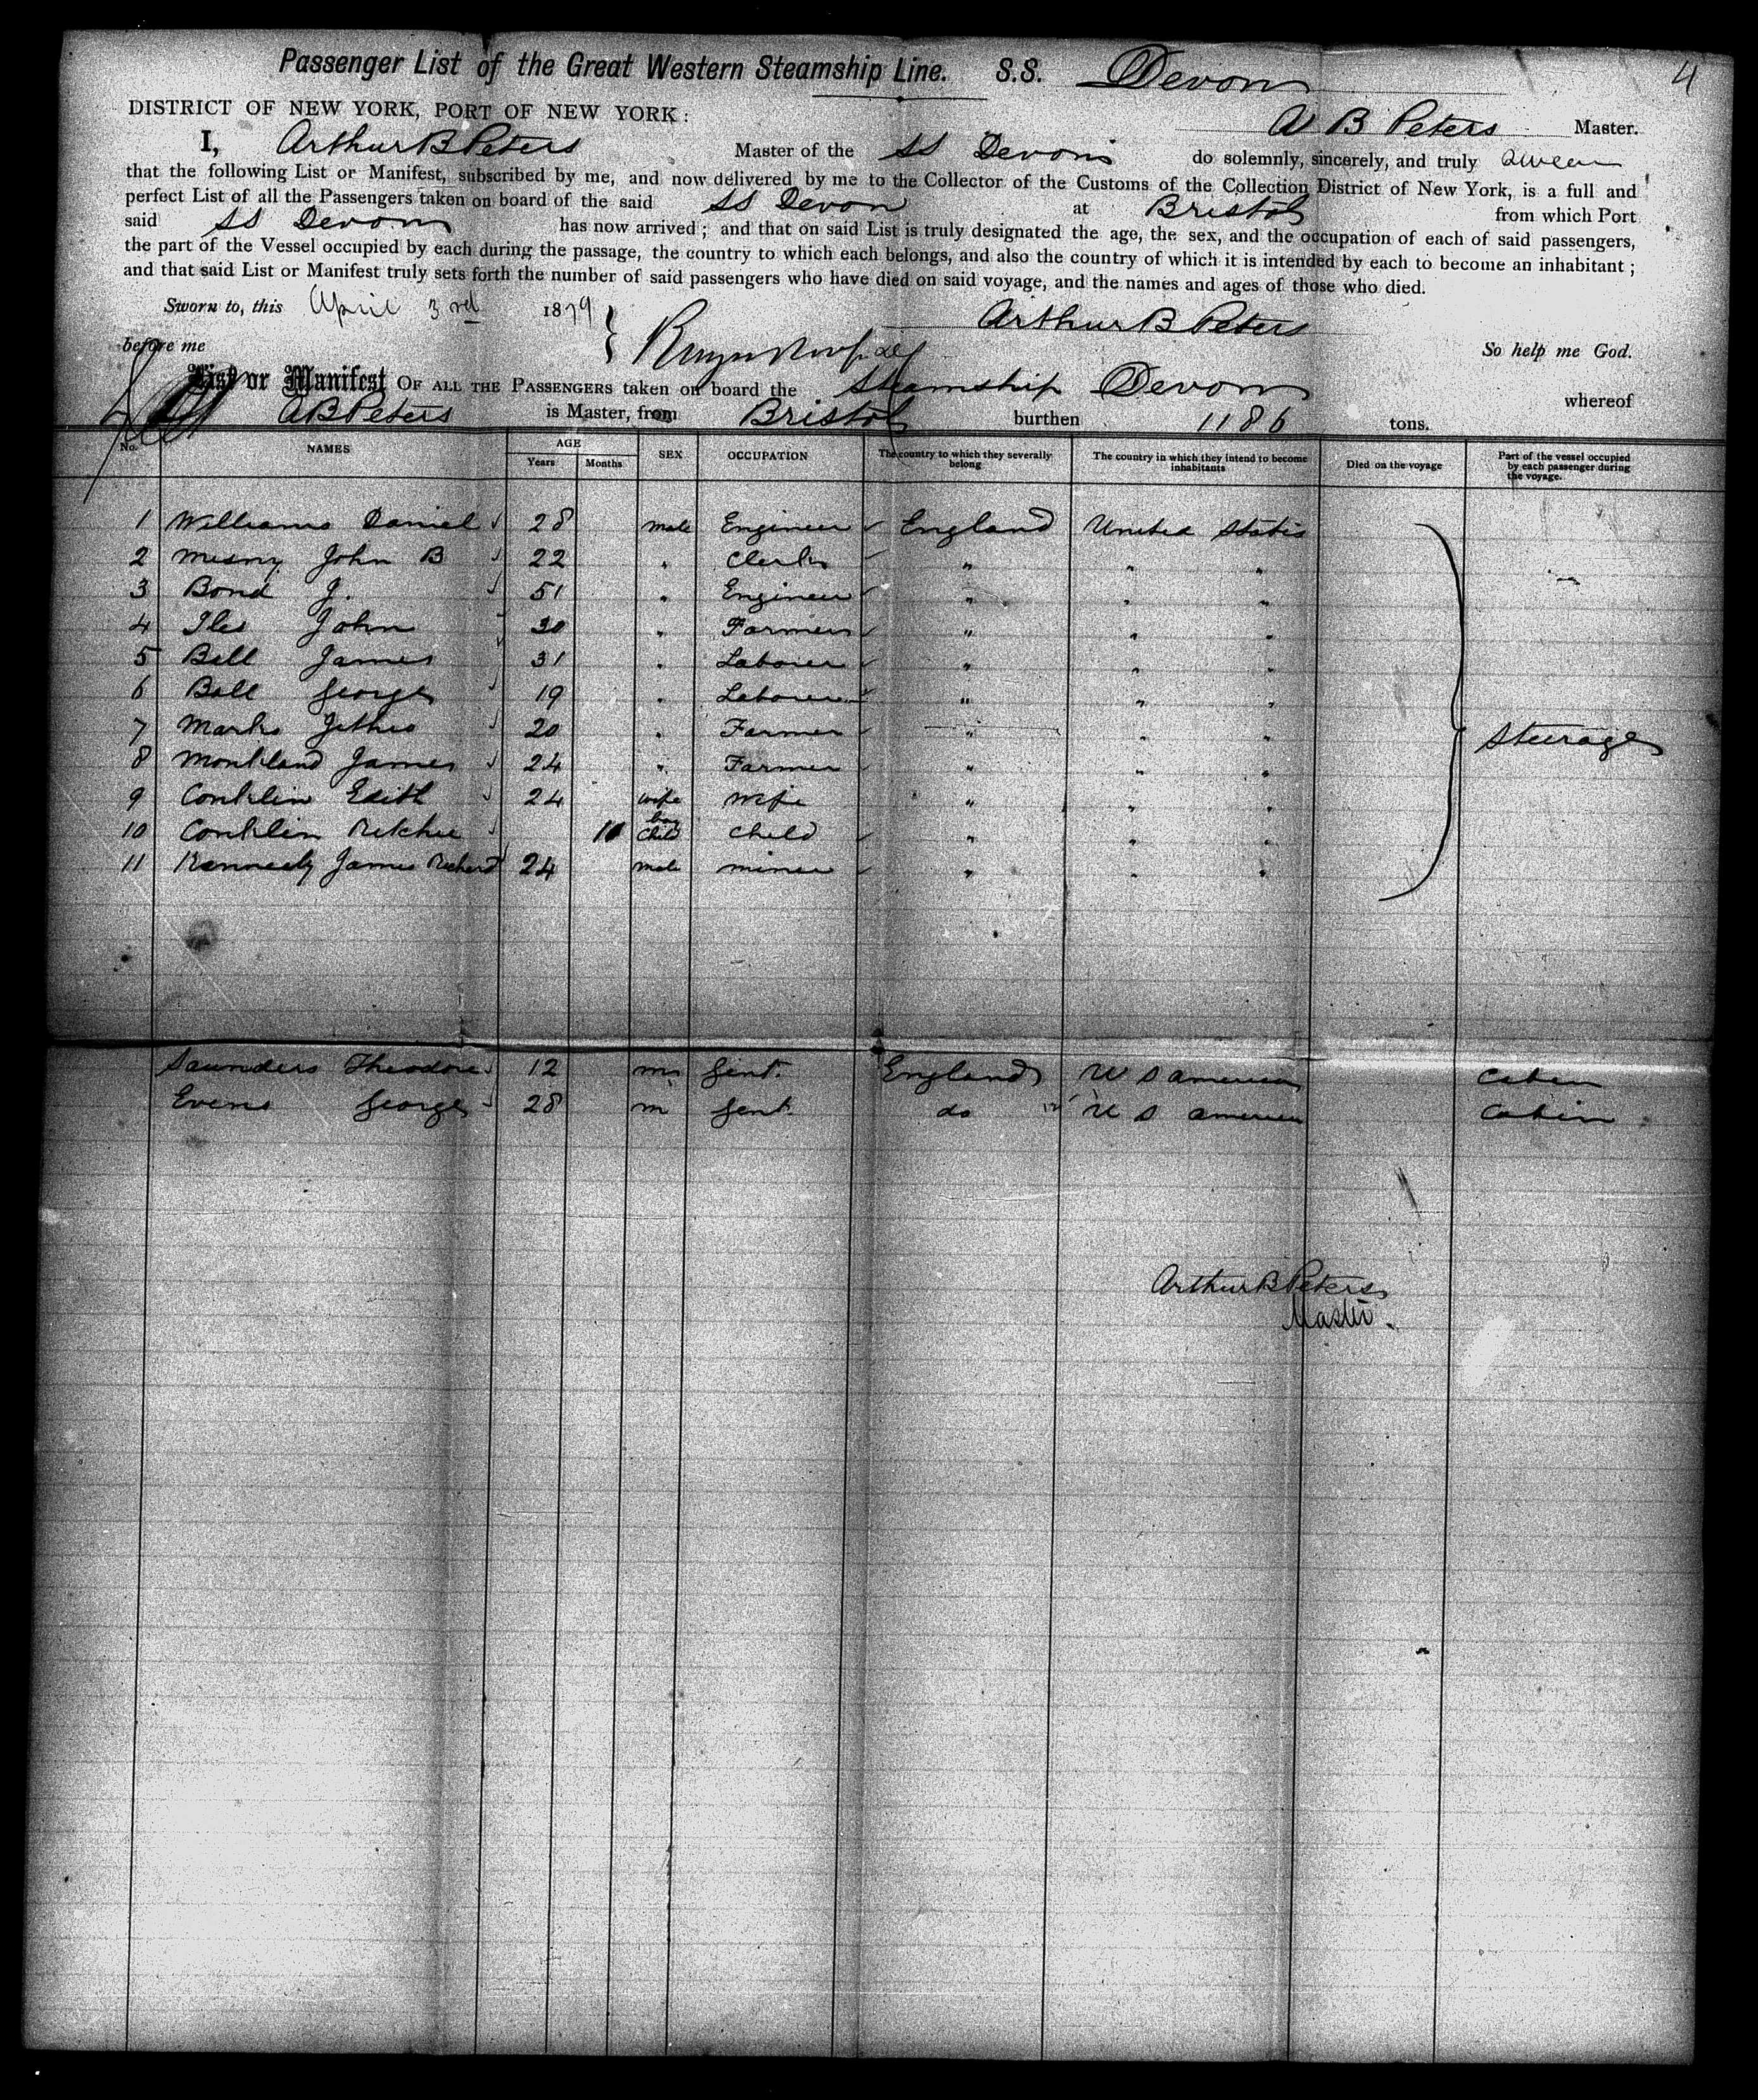 Passenger List of the Great Western Steamship Line. S.S. Devon
4
DISTRICT OF NEW YORK, PORT OF NEW YORK:
A B Peters Master.
I, Arthur B Peters Master of the SS Devon do solemnly, sincerely, and truly swear
that the following List or Manifest, subscribed by me, and now delivered by me to the Collector of the Customs of the Collection District of New York, is a full and
perfect List of all the Passengers taken on board of the said SS Devon at Bristol from which Port
said SS Devon has now arrived; and that on said List is truly designated the age, the sex, and the occupation of each of said passengers,
the part of the Vessel occupied by each during the passage, the country to which each belongs, and also the country of which it is intended by each to become an inhabitant;
and that said List or Manifest truly sets forth the number of said passengers who have died on said voyage, and the names and ages of those who died.
Sworn to, this April 3rd 1879
Arthur B Peters
before me
So help me God.
List or Manifest OF ALL THE PASSENGERS taken on board the Steamship Devon whereof
A B Peters is Master, from Bristol burthen 1186 tons.
No. NAMES AGE Years Months SEX OCCUPATION The country to which they severally belong The country in which they intend to become inhabitants Died on the voyage Part of the vessel occupied by each passenger during the voyage.
1 Williams Daniel 28 male Engineer England United States
2 Mesny John B 22 " Clerk " " "
3 Bond J. 51 " Engineer " " "
4 Iles John 30 " Farmer " " "
5 Bell James 31 " Laborer " " "
6 Ball George 19 " Laborer " " "
7 Marks Jethro 20 " Farmer " " "
Steerage
8 Monkland James 24 " Farmer " " "
9 Conklin Edith 24 wife wife " " "
10 Conklin Ritchie 10 boy child child " " "
11 Kennedy James Richard 24 male miner " " "
Saunders Theodore 12 m Gent. England U S America Cabin
Evens George 28 m Gent. do U S America Cabin
Arthur B Peters
Master.